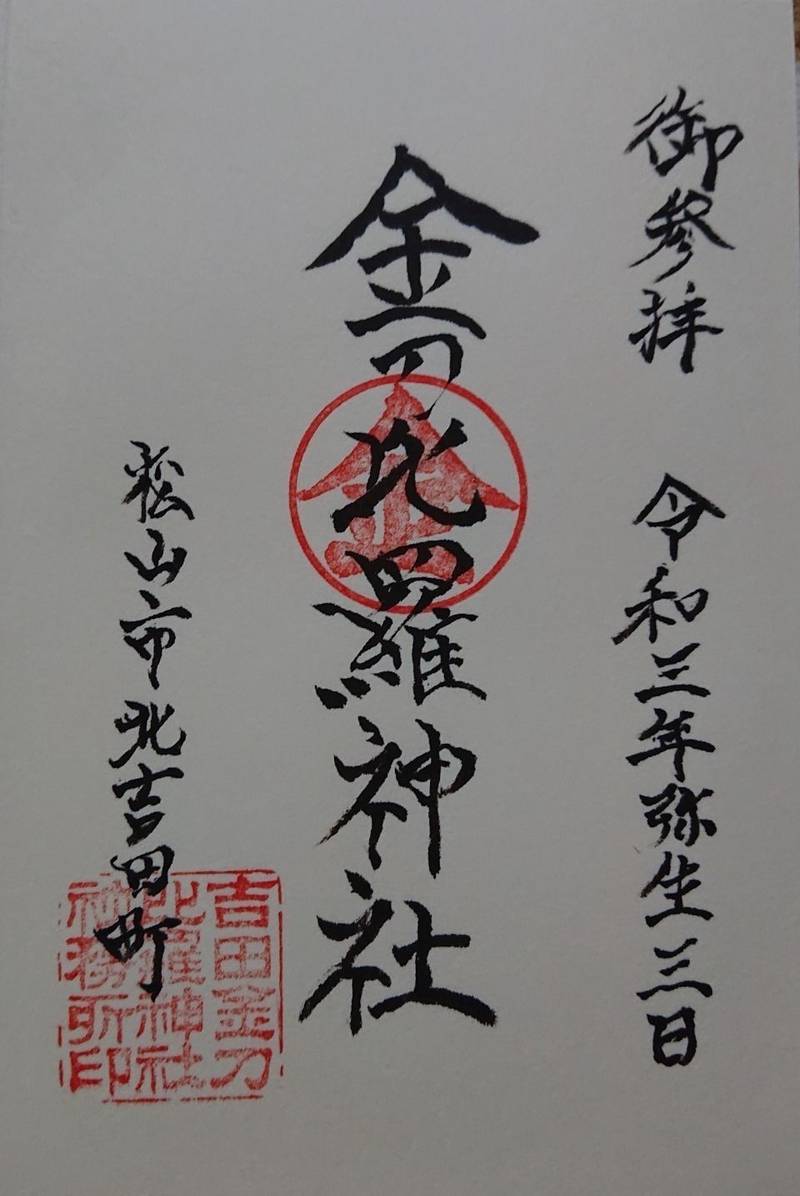 御参拝 令和三年弥生三日
金刀比羅神社
金
松山市北吉田町
吉田金刀
比羅神社
社務所印